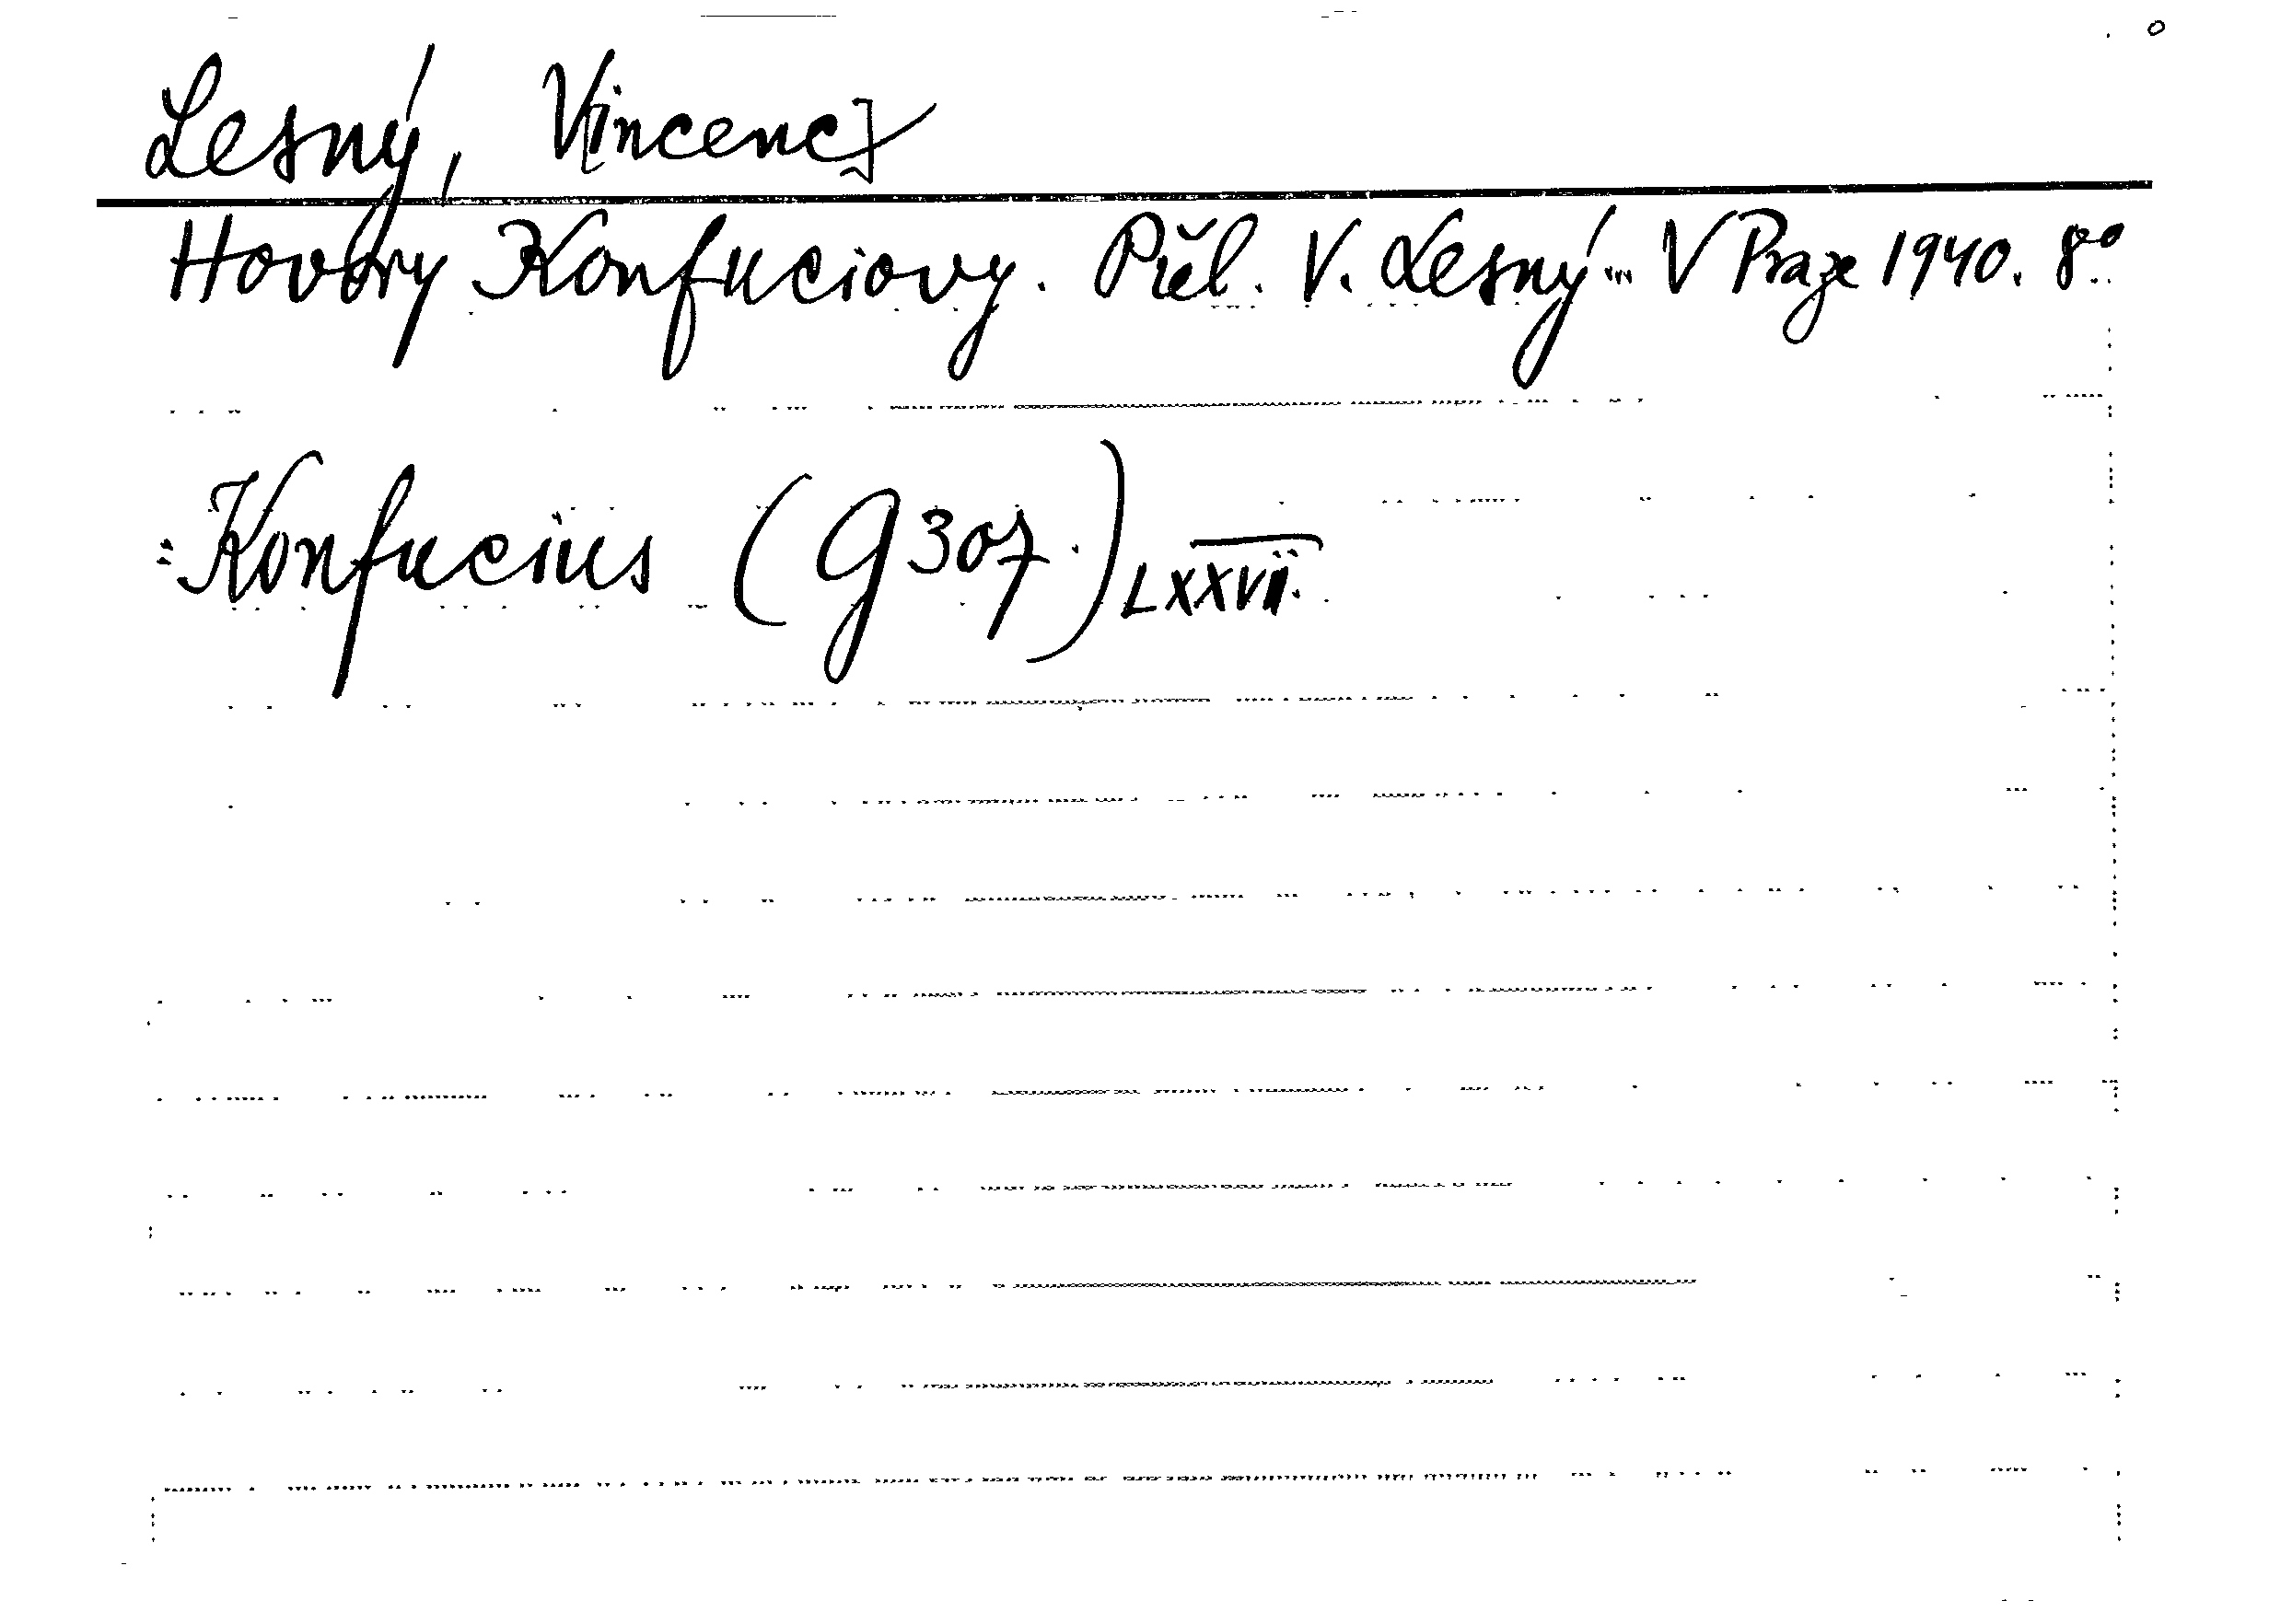 Lesný, V[incenc]
Hovory Konfuciovy. Přel. V. Lesný... V Praze 1940. 8°.
=Konfucius (G 307.) LXXVII.